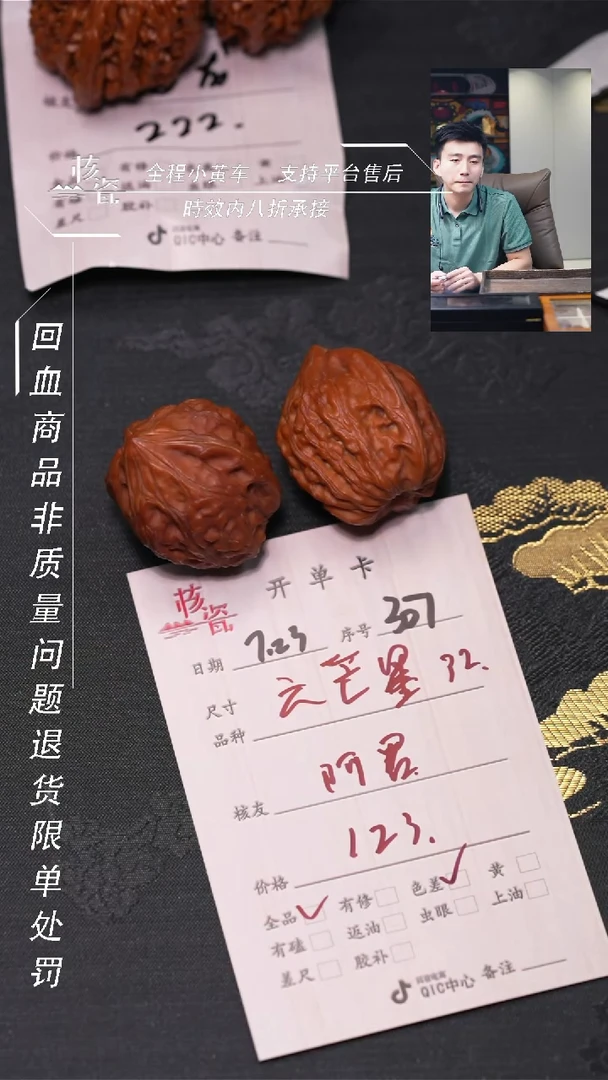 222.
核瓷
全程小黄车 支持平台售后
時效内八折承接
差尺 胶补
抖音电商
QIC中心 备注
回血商品非质量问题退货限单处罚
核瓷 开单卡
日期 7.23 序号 307
尺寸 六芒星 32.
品种
核友 阿君
价格 123.
全品 ✓ 有修 色差 ✓ 黄
有磕 返油 虫眼 上油
差尺 胶补
抖音电商
QIC中心 备注